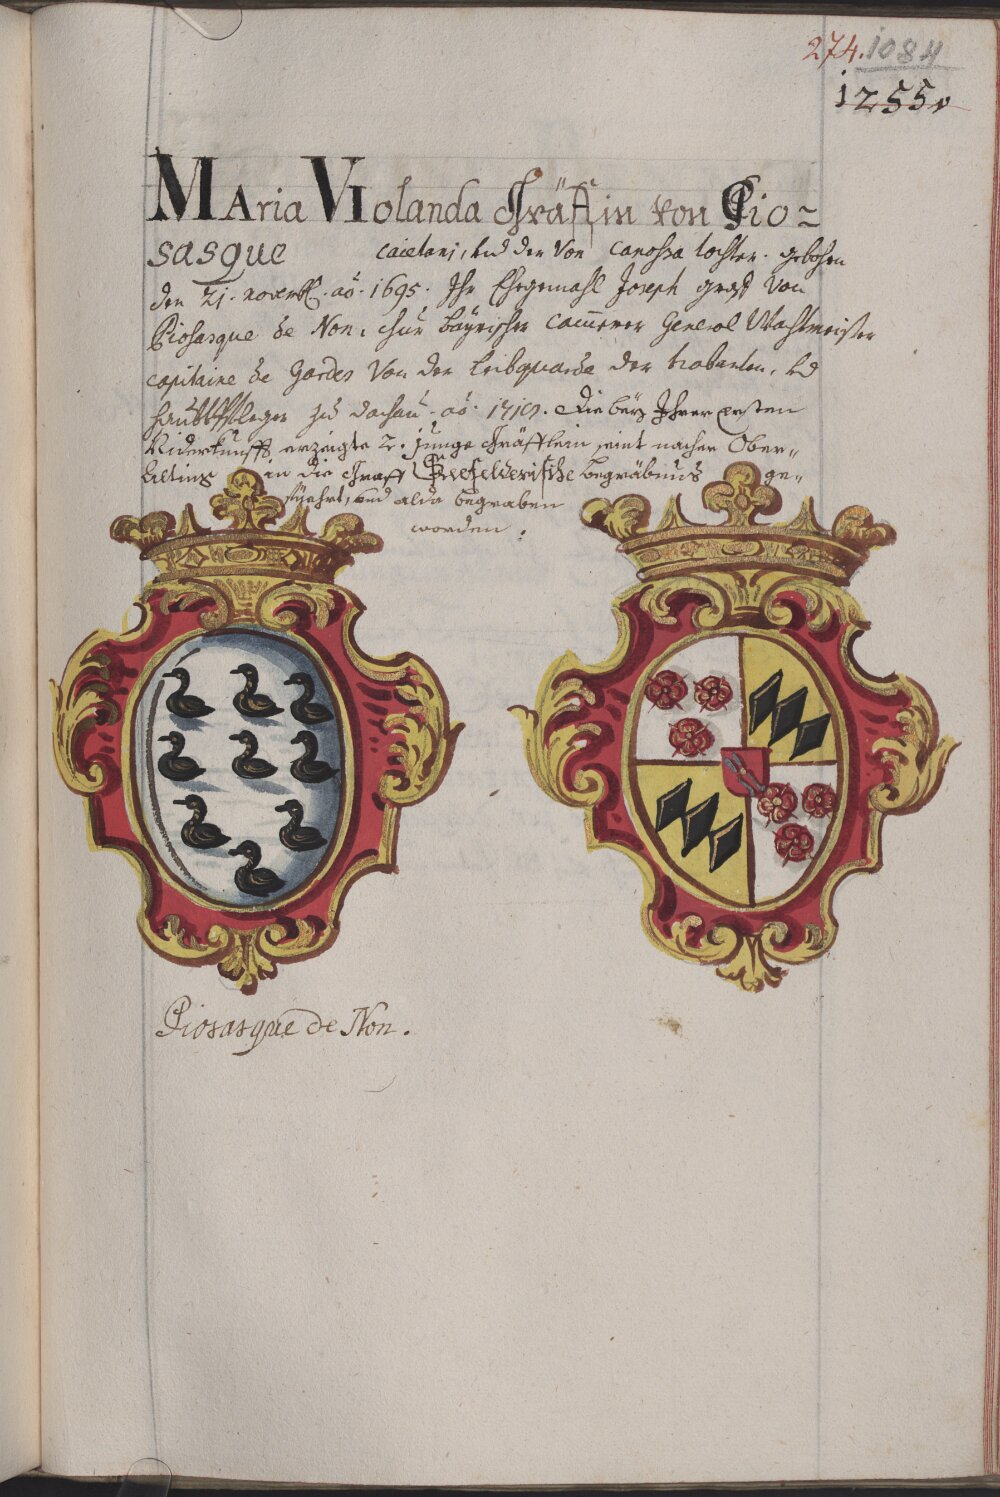 274. 1084
1255.
Maria Violanda Gräffin von Pio=
sasque caietani, und der von Canossa tochter. gebohrn
den 21. novemb. aõ. 1695. Ihr Ehegemahl Joseph graf von
Piosasque de Non, Chur Bayrischer Cammerer General Wachtmeister
capitaine de Gardes von der Leibquarde der trabanten, und
haubtpfleger zu dachau. aõ. Die bey Ihrer ersten
Niderkunfft erzeigte 2. junge Gräfflein seint nacher Ober=
in die Graff begräbnus ge=
führt, und alda begraben
worden.
Piosasque de Non.